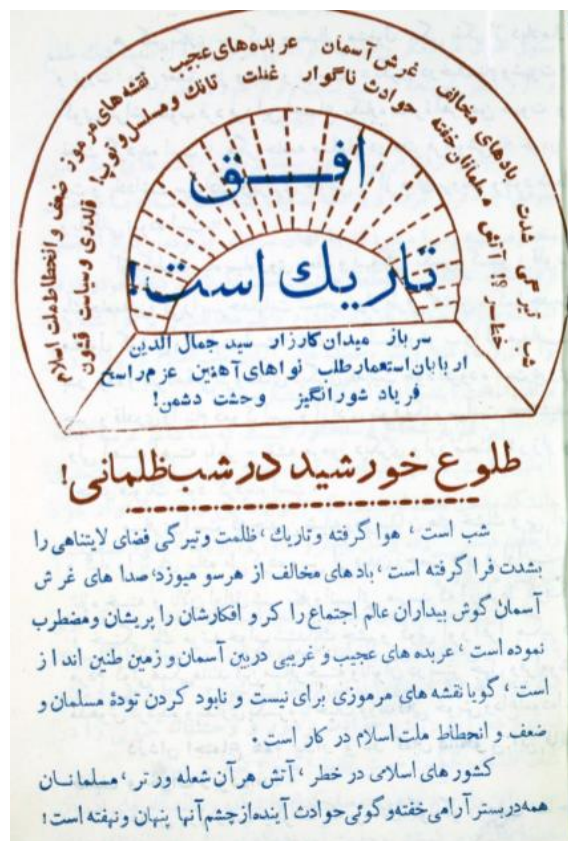 شب تیره می شدت بادهای مخالف غرش آسمان عربده‌های عجیب نقشه‌های مرموز ضعف و انحطاط ملت اسلام
خطر !! آتش مسلمانان خفته حوادث ناگوار غفلت تانك و مسلسل و توپ! قلدری و سیاست قشون
افـــق
تاریك است!
سرباز میدان کارزار سید جمال الدین
اربابان استعمار طلب نواهای آهنین عزم راسخ
فریاد شورانگیز وحشت دشمن!
طلوع خورشید در شب ظلمانی!
شب است ، هوا گرفته و تاریك ، ظلمت و تیرگی فضای لایتناهی را
بشدت فرا گرفته است ، بادهای مخالف از هرسو میوزد، صدا های غرش
آسمان گوش بیداران عالم اجتماع را کر و افکارشان را پریشان ومضطرب
نموده است ، عربده های عجیب و غریبی در بین آسمان و زمین طنین انداز
است ، گویا نقشه های مرموزی برای نیست و نابود کردن تودهٔ مسلمان و
ضعف و انحطاط ملت اسلام در کار است !
کشور های اسلامی در خطر ، آتش هرآن شعله ور تر ، مسلمانـان
همه در بستر آرامی خفته و گوئی حوادث آینده از چشم آنها پنهان و نهفته است !